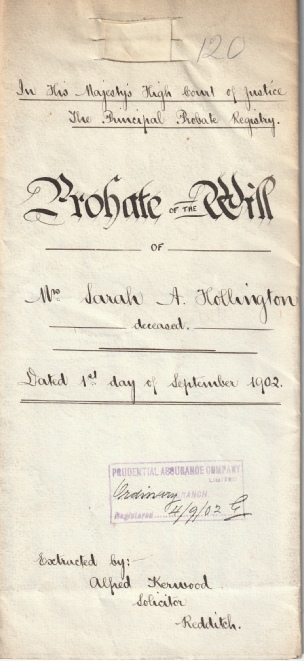 120
In His Majesty's High Court of Justice
The Principal Probate Registry.
Probate OF THE Will
OF
Mrs Sarah A. Hollington
deceased.
Dated 1st day of September 1902.
PRUDENTIAL ASSURANCE COMPANY
LIMITED
Ordinary BRANCH
Registered 4/9/02
Extracted by:-
Alfred Kerwood
Solicitor
Redditch.